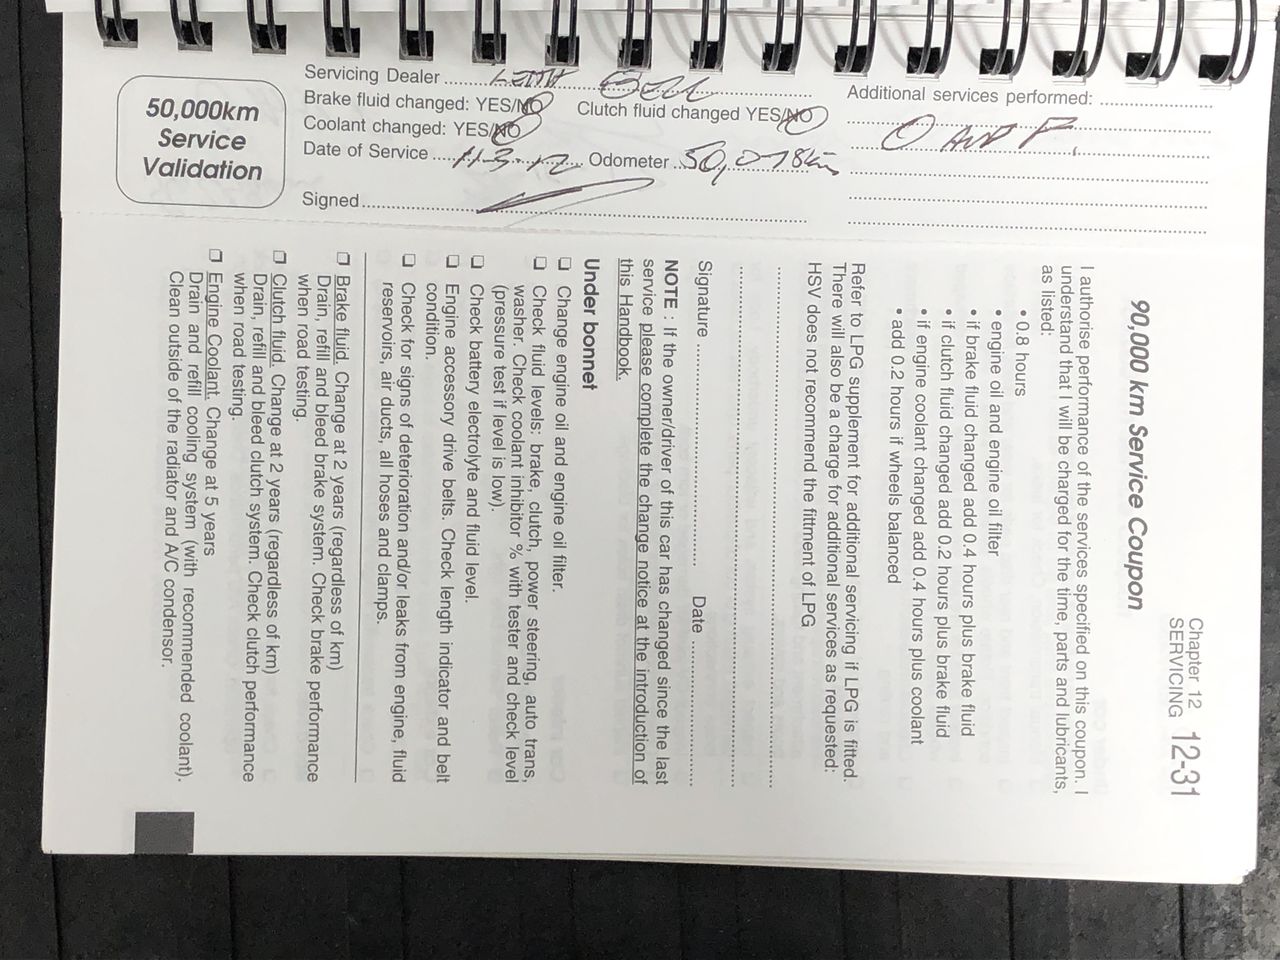 50,000km
Service
Validation
Servicing Dealer
Brake fluid changed: YES/NO
Clutch fluid changed YES/NO
Coolant changed: YES/NO
Date of Service 11-3-12 Odometer 50,078km
Signed
Additional services performed:
O AND F.
Chapter 12
SERVICING 12-31
90,000 km Service Coupon
I authorise performance of the services specified on this coupon. I
understand that I will be charged for the time, parts and lubricants,
as listed:
• 0.8 hours
• engine oil and engine oil filter
• if brake fluid changed add 0.4 hours plus brake fluid
• if clutch fluid changed add 0.2 hours plus brake fluid
• if engine coolant changed add 0.4 hours plus coolant
• add 0.2 hours if wheels balanced
Refer to LPG supplement for additional servicing if LPG is fitted.
There will also be a charge for additional services as requested:
HSV does not recommend the fittment of LPG
Signature Date
NOTE : If the owner/driver of this car has changed since the last
service please complete the change notice at the introduction of
this Handbook.
Under bonnet
❑ Change engine oil and engine oil filter.
❑ Check fluid levels: brake, clutch, power steering, auto trans,
washer. Check coolant inhibitor % with tester and check level
(pressure test if level is low).
❑ Check battery electrolyte and fluid level.
❑ Engine accessory drive belts. Check length indicator and belt
condition.
❑ Check for signs of deterioration and/or leaks from engine, fluid
reservoirs, air ducts, all hoses and clamps.
❑ Brake fluid. Change at 2 years (regardless of km)
Drain, refill and bleed brake system. Check brake performance
when road testing.
❑ Clutch fluid. Change at 2 years (regardless of km)
Drain, refill and bleed clutch system. Check clutch performance
when road testing.
❑ Engine Coolant. Change at 5 years
Drain and refill cooling system (with recommended coolant).
Clean outside of the radiator and A/C condensor.